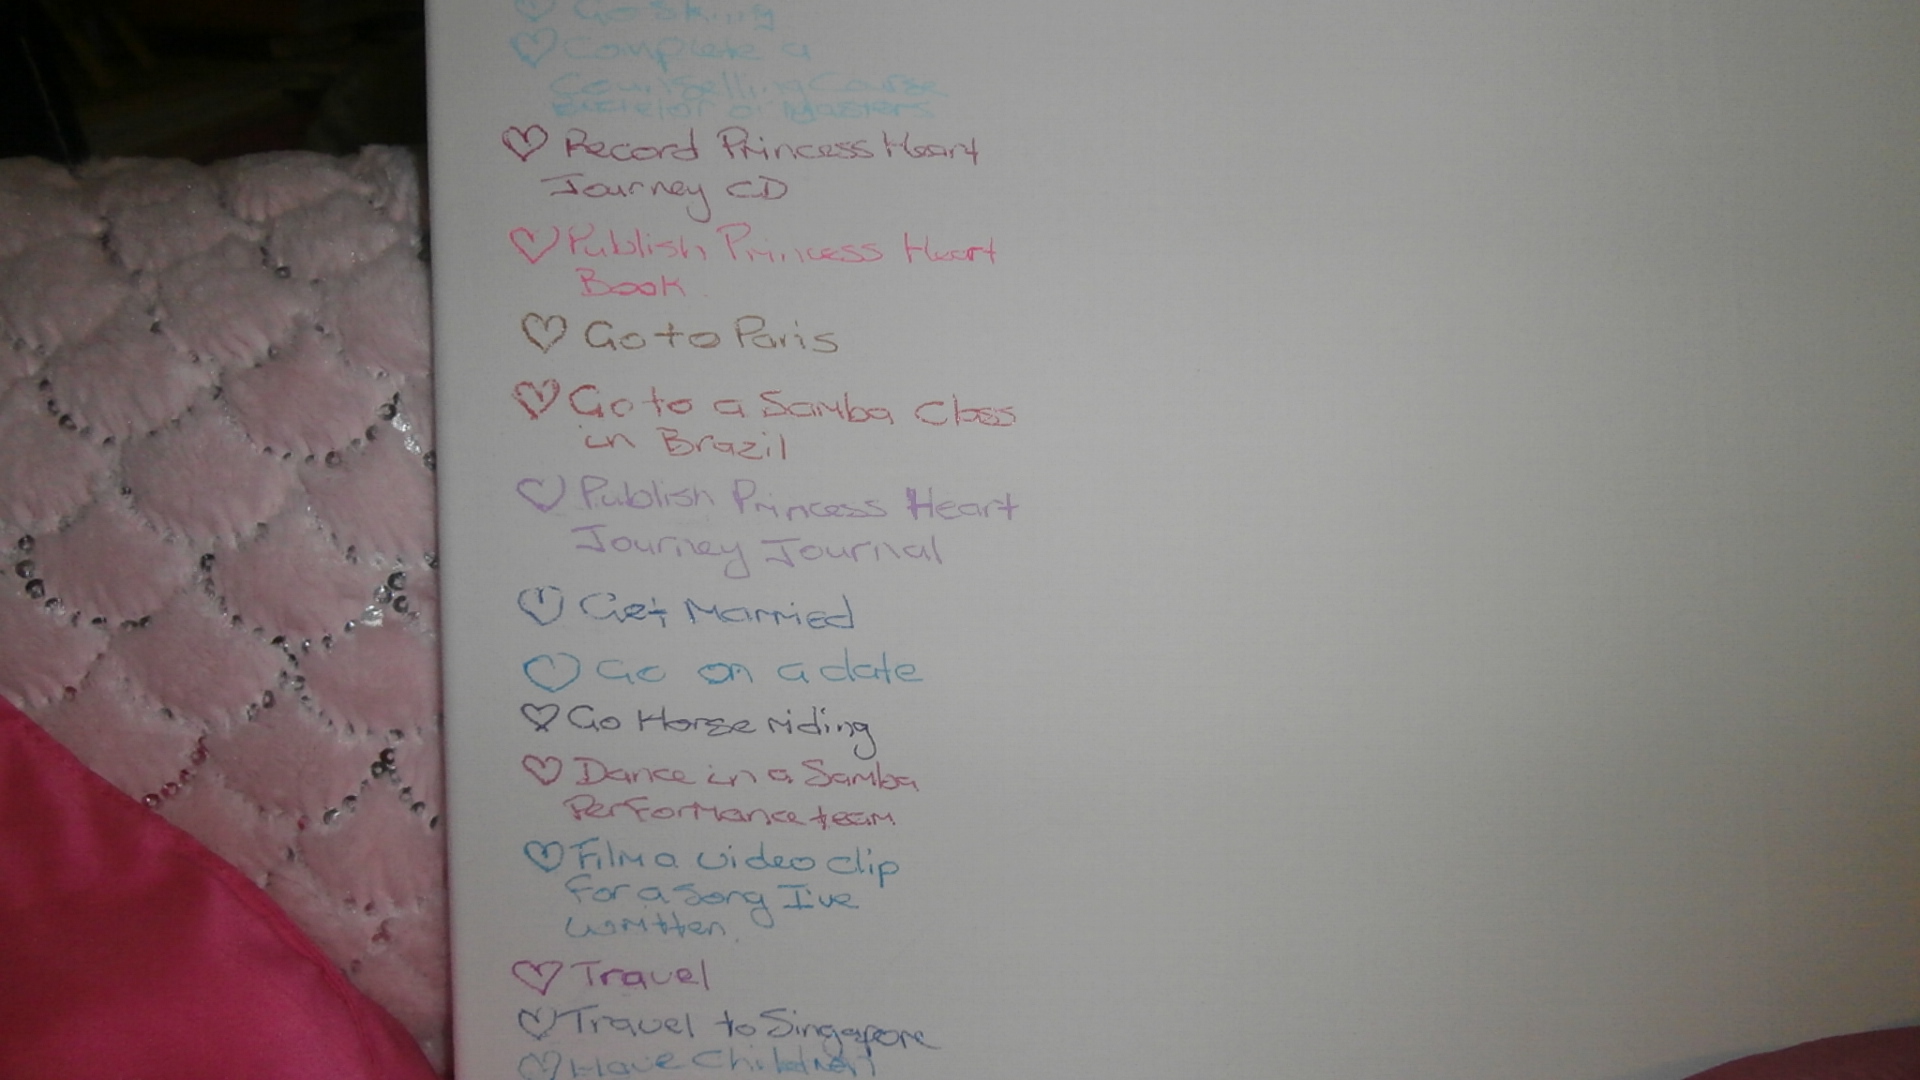 ♡ Go Skiing
♡ Complete a
Counselling Course
♡ Record Princess Heart
Journey CD
♡ Publish Princess Heart
Book
♡ Go to Paris
♡ Go to a Samba Class
in Brazil
♡ Publish Princess Heart
Journey Journal
♡ Get Married
♡ Go on a date
♡ Go Horse riding
♡ Dance in a Samba
Performance team
♡ Film a video clip
For a Song I've
written.
♡ Travel
♡ Travel to Singapore
♡ Have Children